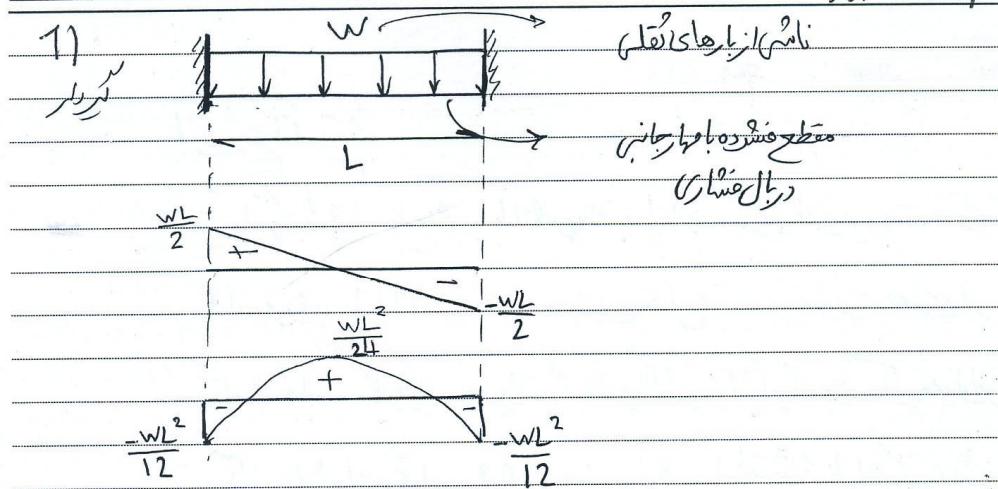 1)
گیردار
W
ناشی از بارهای ثقلی
مقطع فشرده با مهار جانبی
در بال فشاری
L
WL/2
+
-
-WL/2
WL²/24
+
-
-
-WL²/12
-WL²/12